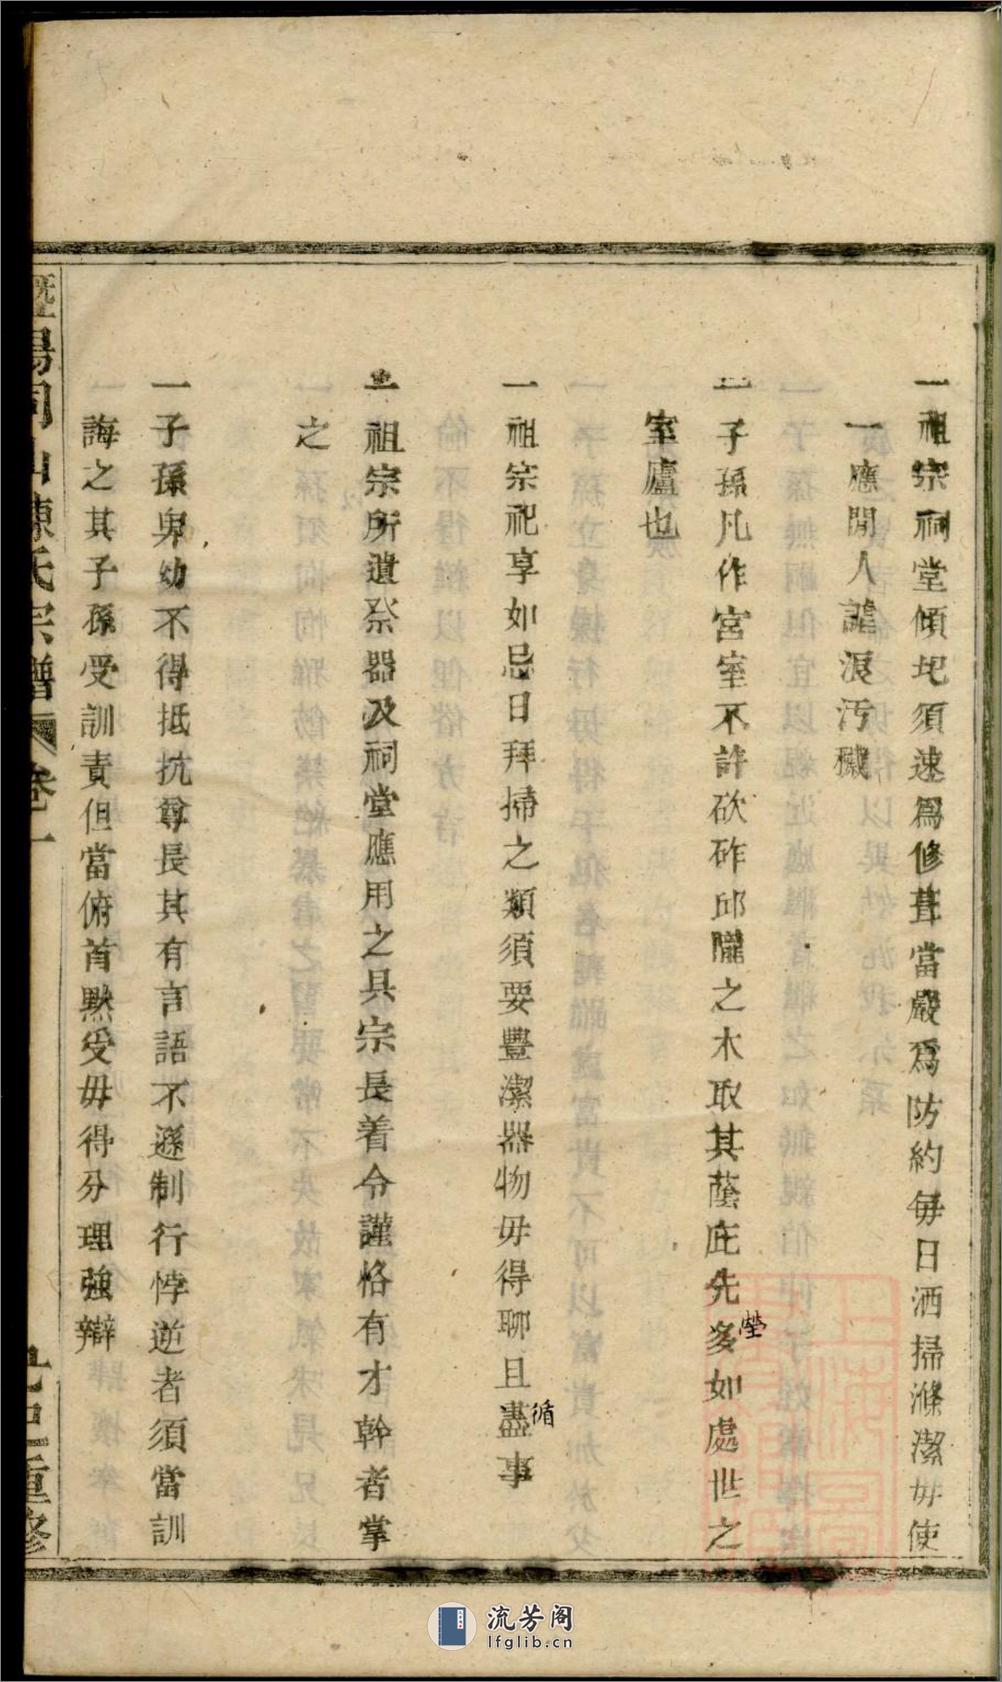 一祖宗祠堂傾圯須速爲修葺當嚴爲防約每日洒掃滌潔毋使
一應閒人謔浪汚穢
一子孫凡作宮室不許砍砟邱隴之木取其蔭庇先多如處世之
塋
室廬也
一祖宗祀享如忌日拜掃之類須要豐潔器物毋得聊且盡事
循
一祖宗所遺祭器及祠堂應用之具宗長着令謹恪有才幹者掌
之
一子孫卑幼不得抵抗尊長其有言語不遜制行悖逆者須當訓
誨之其子孫受訓責但當俯首黙受毋得分理強辯
暨陽同山陳氏宗譜 卷一
重修
流芳阁
lfglib.cn